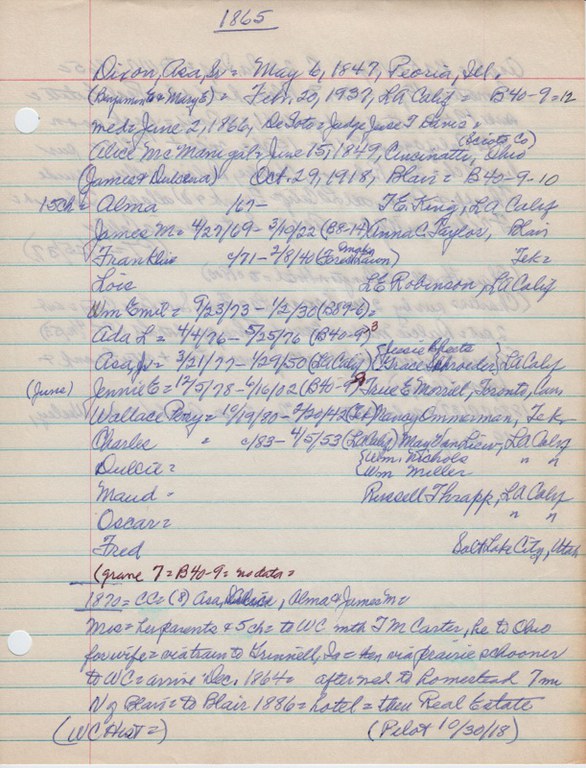 1865
Dixon, Asa, Sr = May 6, 1847, Peoria, Ill.
(Benjamin & Mary E) = Feb. 20, 1937, LA Calif = B40-9=12
med = June 2, 1866, DeSoto = Judge Jesse T Davis =
Alice McManigal = June 15, 1849, Cincinatti, Ohio (Scioto Co)
(James & Dulcena) Oct. 29, 1918, Blair = B40-9-10
15ch = Alma /67- T.E. King, LA Calif
James M = 4/27/69 - 3/19/22 (B8-14) Anna C Taylor, Blair
Franklin c/71 - 2/8/40 (Omaha Tek =
Lois L.E. Robinson, LA Calif
Wm Emit = 9/23/73 - 1/2/30 (B59-6) =
Ada L = 4/4/76 - 5/25/76 (B40-9) 3
Asa, Jr = 3/21/77 - 1/29/50 (LA Calif) Grace Schroeder} LA Calif
(June) Jennie E = 12/5/78 - 6/16/02 (B40-9 True E Morrill, Toronto, Can
Wallace Perry = 10/19/80 - Nancy Ommerman, Tek =
Charles " c/83 - 4/5/53 (LA Calif) May VanLiew, LA Calif
Dulcie = {Wm. Nichols " "
{Wm Miller
Maud = Russell Thrapp, LA Calif
Oscar = " "
Fred Salt Lake City, Utah
(grave 7 = B40-9 = no data =
1870 = CC = (8) Asa, Alma & James M =
Mrs = her parents & 5 ch = to WC with T M Carter, he to Ohio
for wife = via train to Grinnell, Ia = then via prairie schooner
to WC = arrive Dec. 1864 = after med to homestead 7 mi
N of Blair = to Blair 1886 = hotel = then Real Estate
(WC Hist =) (Pilot 10/30/18)